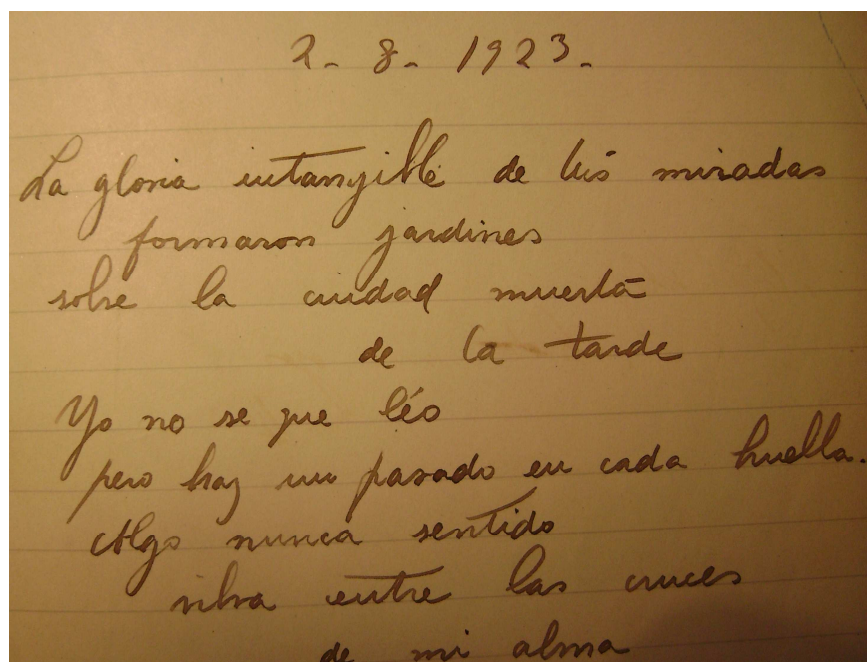 2-8-1923-
La gloria intangible de tus miradas
formaron jardines
sobre la ciudad muerta
de la tarde
Yo no se que léo
pero hay un pasado en cada huella.
Algo nunca sentido
silva entre las cruces
de mi alma